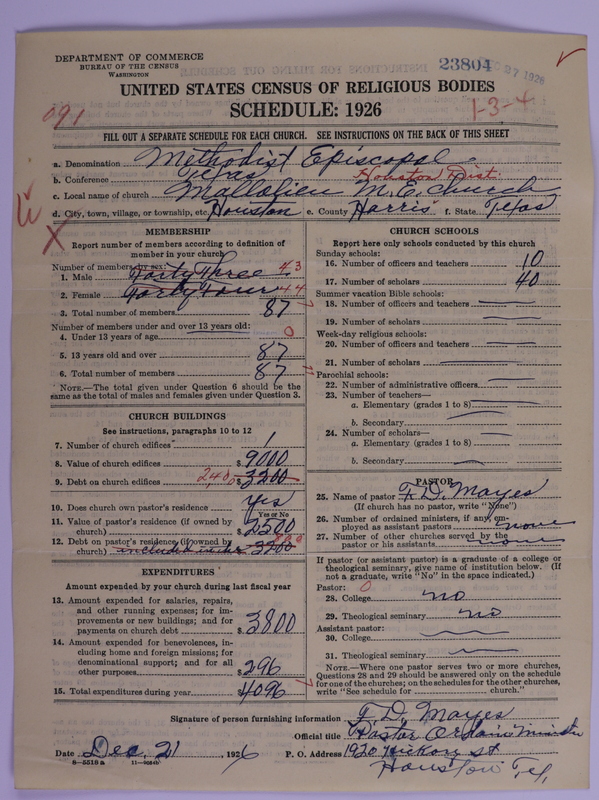 DEPARTMENT OF COMMERCE
BUREAU OF THE CENSUS
WASHINGTON
23804
27 1926
UNITED STATES CENSUS OF RELIGIOUS BODIES
SCHEDULE: 1926
091
1-3-4
FILL OUT A SEPARATE SCHEDULE FOR EACH CHURCH. SEE INSTRUCTIONS ON THE BACK OF THIS SHEET
a. Denomination Methodist Episcopal
b. Conference Texas Houston Dist.
c. Local name of church Mallalieu M. E. Church
d. City, town, village, or township, etc. Houston e. County Harris f. State Texas
MEMBERSHIP
Report number of members according to definition of
member in your church
Number of members by sex:
1. Male Forty Three 43
2. Female Forty Four 44
3. Total number of members 87
Number of members under and over 13 years old:
4. Under 13 years of age 0
5. 13 years old and over 87
6. Total number of members 87
NOTE.—The total given under Question 6 should be the
same as the total of males and females given under Question 3.
CHURCH BUILDINGS
See instructions, paragraphs 10 to 12
7. Number of church edifices 1
8. Value of church edifices $ 9000
9. Debt on church edifices 2400 $ 3200
10. Does church own pastor's residence yes
Yes or No
11. Value of pastor's residence (if owned by
church) $ 2500
12. Debt on pastor's residence (if owned by 800
church) included in the 3200
EXPENDITURES
Amount expended by your church during last fiscal year
13. Amount expended for salaries, repairs,
and other running expenses; for im-
provements or new buildings; and for
payments on church debt $ 3800
14. Amount expended for benevolences, in-
cluding home and foreign missions; for
denominational support; and for all
other purposes $ 296
15. Total expenditures during year $ 4096
CHURCH SCHOOLS
Report here only schools conducted by this church
Sunday schools:
16. Number of officers and teachers 10
17. Number of scholars 40
Summer vacation Bible schools:
18. Number of officers and teachers
19. Number of scholars
Week-day religious schools:
20. Number of officers and teachers
21. Number of scholars
Parochial schools:
22. Number of administrative officers
23. Number of teachers—
a. Elementary (grades 1 to 8)
b. Secondary
24. Number of scholars—
a. Elementary (grades 1 to 8)
b. Secondary
PASTOR
25. Name of pastor F. D. Mayes
(If church has no pastor, write "None")
26. Number of ordained ministers, if any, em-
ployed as assistant pastors none
27. Number of other churches served by the
pastor or his assistants none
If pastor (or assistant pastor) is a graduate of a college or
theological seminary, give name of institution below. (If
not a graduate, write "No" in the space indicated.)
Pastor: 0
28. College no
29. Theological seminary no
Assistant pastor:
30. College
31. Theological seminary
NOTE.—Where one pastor serves two or more churches,
Questions 28 and 29 should be answered only on the schedule
for one of the churches; on the schedules for the other churches,
write "See schedule for church."
Signature of person furnishing information F. D. Mayes
Official title Pastor Minister
Date Dec. 21, 1926 P. O. Address 1920 Hickory St
8—5518 a
Houston Tex,